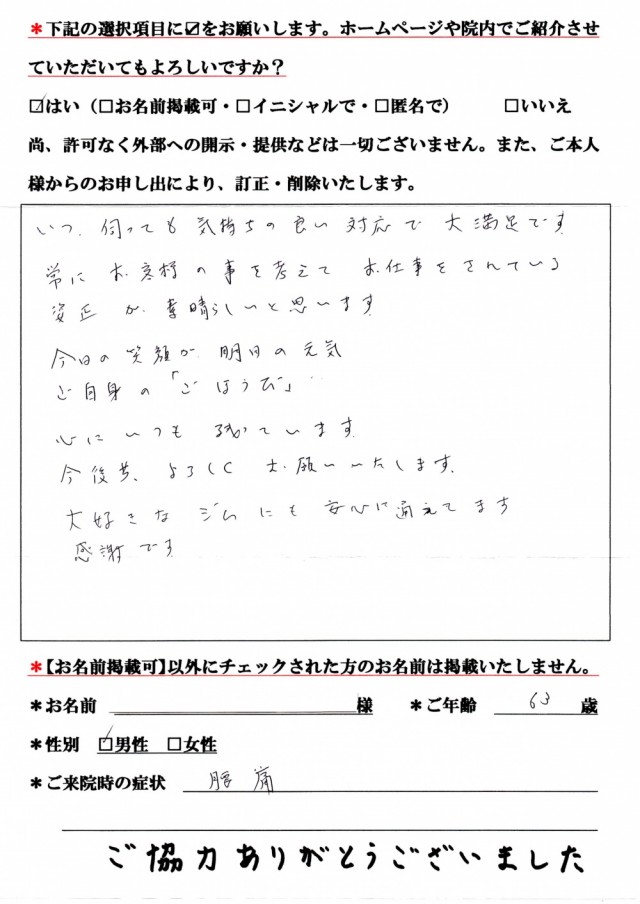 *下記の選択項目に☑をお願いします。ホームページや院内でご紹介させ
ていただいてもよろしいですか？
☑はい（□お名前掲載可・□イニシャルで・□匿名で）　□いいえ
尚、許可なく外部への開示・提供などは一切ございません。また、ご本人
様からのお申し出により、訂正・削除いたします。
いつ 伺っても 気持ちの良い 対応で 大満足です
常に お客様の事を考えて お仕事をされている
姿正が 素晴らしいと思います
今日の笑顔が 明日の元気
ご自身の「ごほうび」…
心に いつも 残っています
今後共、よろしく お願いいたします。
大好きな ジムにも 安心に通えてます
感謝です
*【お名前掲載可】以外にチェックされた方のお名前は掲載いたしません。
*お名前 様 *ご年齢 63 歳
*性別 ☑男性 □女性
*ご来院時の症状 腰痛
ご協力ありがとうございました